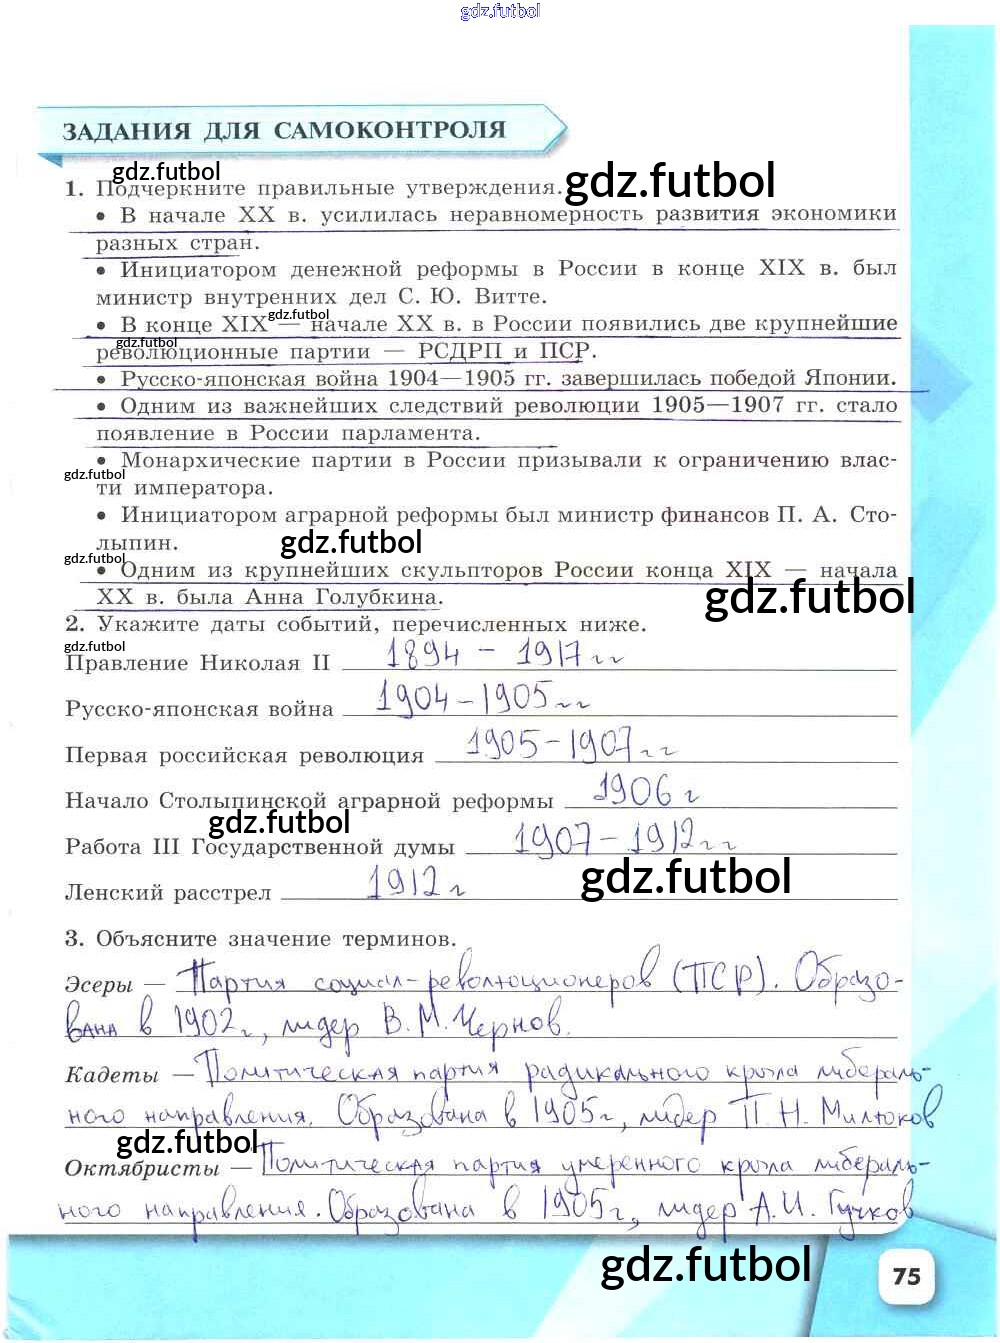 gdz.futbol
ЗАДАНИЯ ДЛЯ САМОКОНТРОЛЯ
gdz.futbol
gdz.futbol
1. Подчеркните правильные утверждения.
• В начале XX в. усилилась неравномерность развития экономики
разных стран.
• Инициатором денежной реформы в России в конце XIX в. был
министр внутренних дел С. Ю. Витте.
gdz.futbol
• В конце XIX — начале XX в. в России появились две крупнейшие
gdz.futbol
революционные партии — РСДРП и ПСР.
• Русско-японская война 1904—1905 гг. завершилась победой Японии.
• Одним из важнейших следствий революции 1905—1907 гг. стало
появление в России парламента.
• Монархические партии в России призывали к ограничению влас-
gdz.futbol
ти императора.
• Инициатором аграрной реформы был министр финансов П. А. Сто-
лыпин.
gdz.futbol
gdz.futbol
• Одним из крупнейших скульпторов России конца XIX — начала
XX в. была Анна Голубкина.
gdz.futbol
2. Укажите даты событий, перечисленных ниже.
gdz.futbol
Правление Николая II 1894 – 1917 гг
Русско-японская война 1904 – 1905 гг
Первая российская революция 1905 – 1907 г г
Начало Столыпинской аграрной реформы 1906 г
gdz.futbol
Работа III Государственной думы 1907 – 1912 г г
gdz.futbol
Ленский расстрел 1912 г
3. Объясните значение терминов.
Эсеры — Партия социал-революционеров (ПСР). Образо-
вана в 1902 г, лидер В. М. Чернов.
Кадеты — Политическая партия радикального крыла либераль-
ного направления. Образована в 1905г, лидер П. Н. Милюков
gdz.futbol
Октябристы — Политическая партия умеренного крыла либераль-
ного направления. Образована в 1905г, лидер А. И. Гучков
gdz.futbol
75